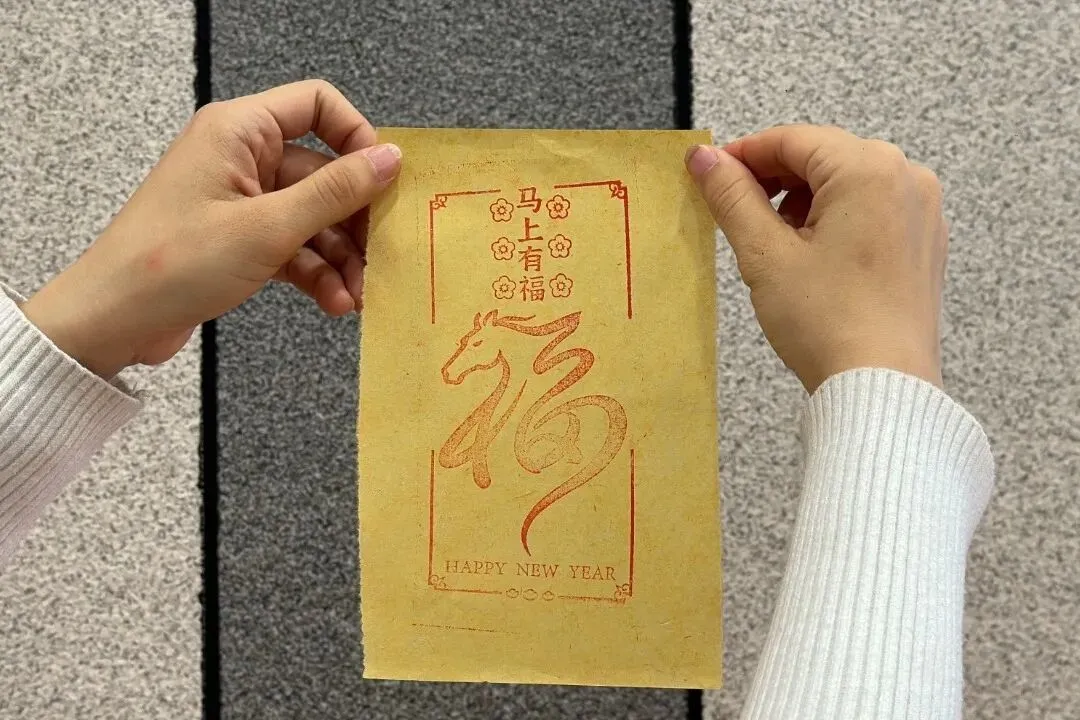 马上有福
福
HAPPY NEW YEAR